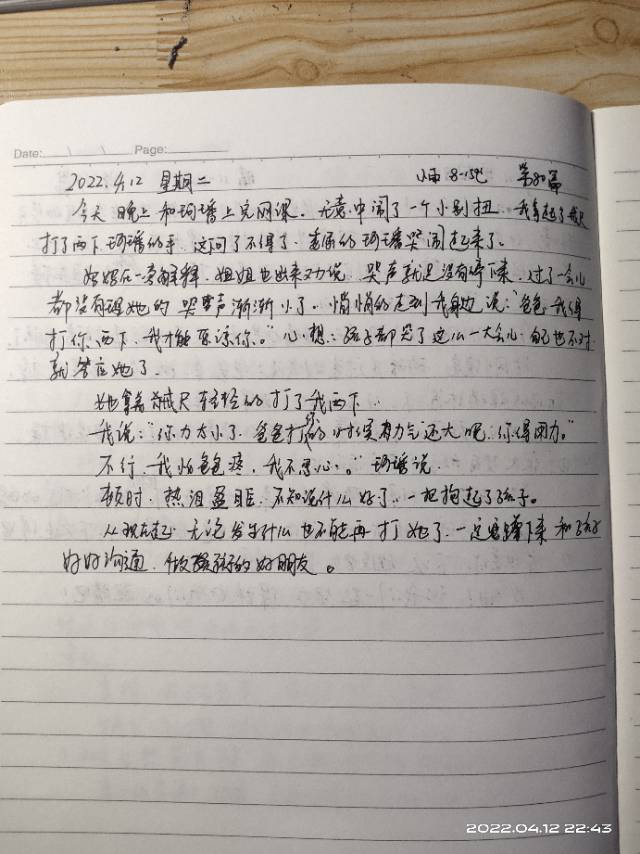 Date: / / Page:
2022.4.12 星期二 小雨 8-15℃ 第80篇
今天晚上和珂璠上完网课,无意中闹了一个小别扭,我拿起了戒尺
打了两下珂璠的手,这回了不得了,委屈的珂璠哭闹起来了。
奶奶在一旁解释,姐姐也出来劝说,哭声就是没有停下来,过了一会儿
都没有理她的哭声渐渐小了,悄悄的走到我身边说:“爸爸,我得
打你两下,我才能原谅你。”心想:孩子都哭了这么一大会儿,自己也不对,
就答应她了。
她拿着戒尺轻轻的打了我两下。
我说:“你力太小了,爸爸打你的时候力气还大呢,你得用力。”
不行,我怕爸爸疼,我不忍心。”珂璠说.
顿时,热泪盈眶,不知说什么好了,一把抱起了孩子。
从现在起,无论发生什么也不能再打她了,一定要蹲下来和孩子
好好沟通,做孩子的好朋友。
2022.04.12 22:43